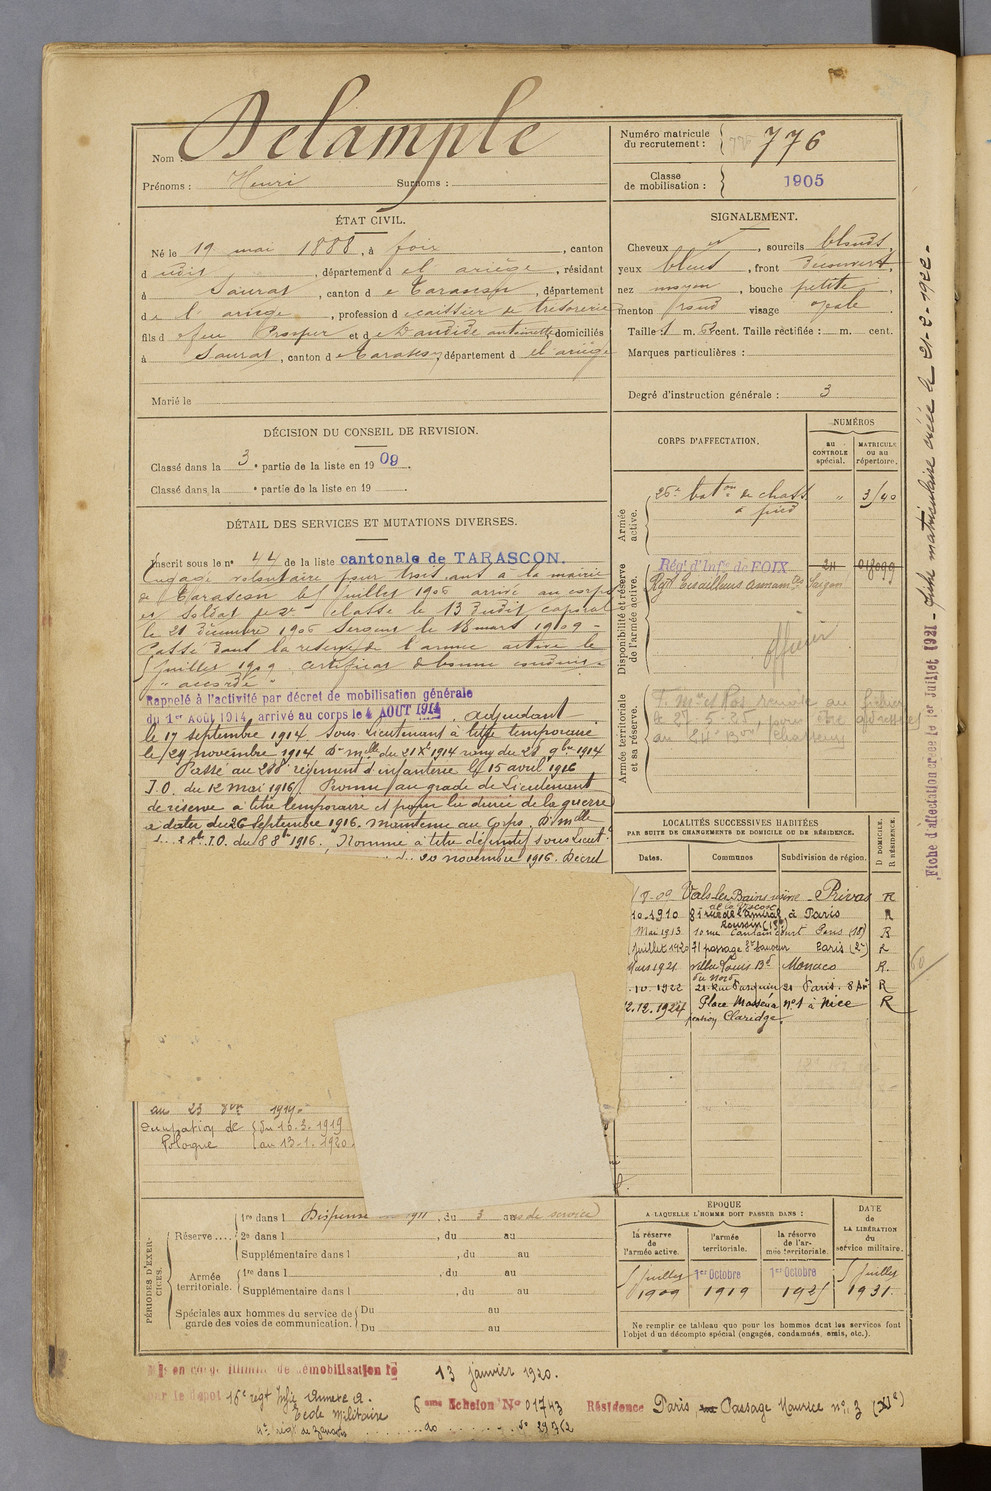 Nom : Delample
Prénoms : Henri Surnoms :
Numéro matricule du recrutement : 776
Classe de mobilisation : 1905
ÉTAT CIVIL.
Né le 19 mai 1888, à foix, canton
dudit, département de l ariège, résidant
à Saurat, canton de Tarascon, département
de l' ariège, profession de caissier de trésorerie
fils de feu Prosper et de Candide antoinette domiciliés
à Saurat, canton de Tarascon, département de l'ariège
Marié le
SIGNALEMENT.
Cheveux et, sourcils blonds,
yeux bleus, front découvert,
nez moyen, bouche petite,
menton rond visage ovale
Taille : 1 m. cent. Taille rectifiée : m. cent.
Marques particulières :
Degré d'instruction générale : 3
DÉCISION DU CONSEIL DE REVISION.
Classé dans la 3e partie de la liste en 1909.
Classé dans la e partie de la liste en 19
DÉTAIL DES SERVICES ET MUTATIONS DIVERSES.
Inscrit sous le no 44 de la liste cantonale de TARASCON.
Engagé volontaire pour trois ans à la mairie
de Tarascon le 5 juillet 1906 arrivé au corps
et soldat de 2e classe le 13 dudit caporal
le 21 décembre 1906 Sergent le 18 mars 1909 -
Passé dans la réserve de l'armée active le
5 juillet 1909 certificat de bonne conduite
"accordé"
Rappelé à l'activité par décret de mobilisation générale
du 1er Août 1914, arrivé au corps le 4 AOUT 1914. adjudant
le 17 septembre 1914. Sous-Lieutenant à titre temporaire
le 29 novembre 1914 Dn mlle du 21 Xe 1914 rang du 28 9bre 1914
Passé au 288 régiment d'infanterie le 15 avril 1916
J.O. du 12 mai 1916. Promu au grade de Lieutenant
de réserve à titre temporaire et pour la durée de la guerre
à dater du 26 septembre 1916. Maintenu au Corps. Dn mlle
J.O. du 8 8bre 1916. Nommé à titre définitif sous Lieut
20 novembre 1916. Décret
au 23 1919.
Occupation de du 16.3.1919
Pologne au 13.1.1920.
CORPS D'AFFECTATION.
NUMÉROS
au CONTROLE spécial.
MATRICULE ou au répertoire.
Armée active.
26e baton de chass " 3140
à pied
Disponibilité et réserve de l'armée active.
Régt d'Infie de FOIX 211 018099
Régt Tirailleurs annamites Saïgon
officier
Armée territoriale et sa réserve.
le 27-5-25, pour être adressés
au 24e Bon Chasseurs
LOCALITÉS SUCCESSIVES HABITÉES
PAR SUITE DE CHANGEMENTS DE DOMICILE OU DE RÉSIDENCE.
Dates. Communes Subdivision de région. D DOMICILE. R RÉSIDENCE.
-09 Vals-les-Bains usine Privas R
de la Viscose
10.1910 81 rue de l'amiral à Paris R
Roussin (15e)
Mai 1913 10 rue Caulaincourt Paris (18) R
Juillet 1920 71 passage St Sauveur Paris (2e) R
Mars 1921 villa Louis Bd Monaco R.
du Nord
.10.1922 21 Rue Pasquin 21 Paris. 8 Ar R
2.12.1924 Place Masséna no 1 à Nice R
pension Claridge
PÉRIODES D'EXERCICES.
Réserve.... 1re dans l Dispensé 1911, du 3 au ans de service
2e dans l , du au
Supplémentaire dans l , du au
Armée territoriale. 1re dans l , du au
Supplémentaire dans l , du au
Spéciales aux hommes du service de garde des voies de communication. Du au
Du au
ÉPOQUE
A LAQUELLE L'HOMME DOIT PASSER DANS :
la réserve de l'armée active. l'armée territoriale. la réserve de l'armée territoriale.
DATE de LA LIBÉRATION du service militaire.
5 juillet 1er Octobre 1er Octobre 5 juillet
1909 1919 1925 1931
Ne remplir ce tableau que pour les hommes dont les services font
l'objet d'un décompte spécial (engagés, condamnés, omis, etc.).
Mis en congé illimité de démobilisation le 13 janvier 1920.
par le dépôt 16e régt Infie Annexe A.
École Militaire
6eme Echelon No 01743 Résidence Paris, Passage Maurice no 3 (XIe)
4e régt de zouaves do No 29762
Fiche d'affectation créée le 1er Juillet 1921 - fiche matriculaire créée le 21-2-1922 -